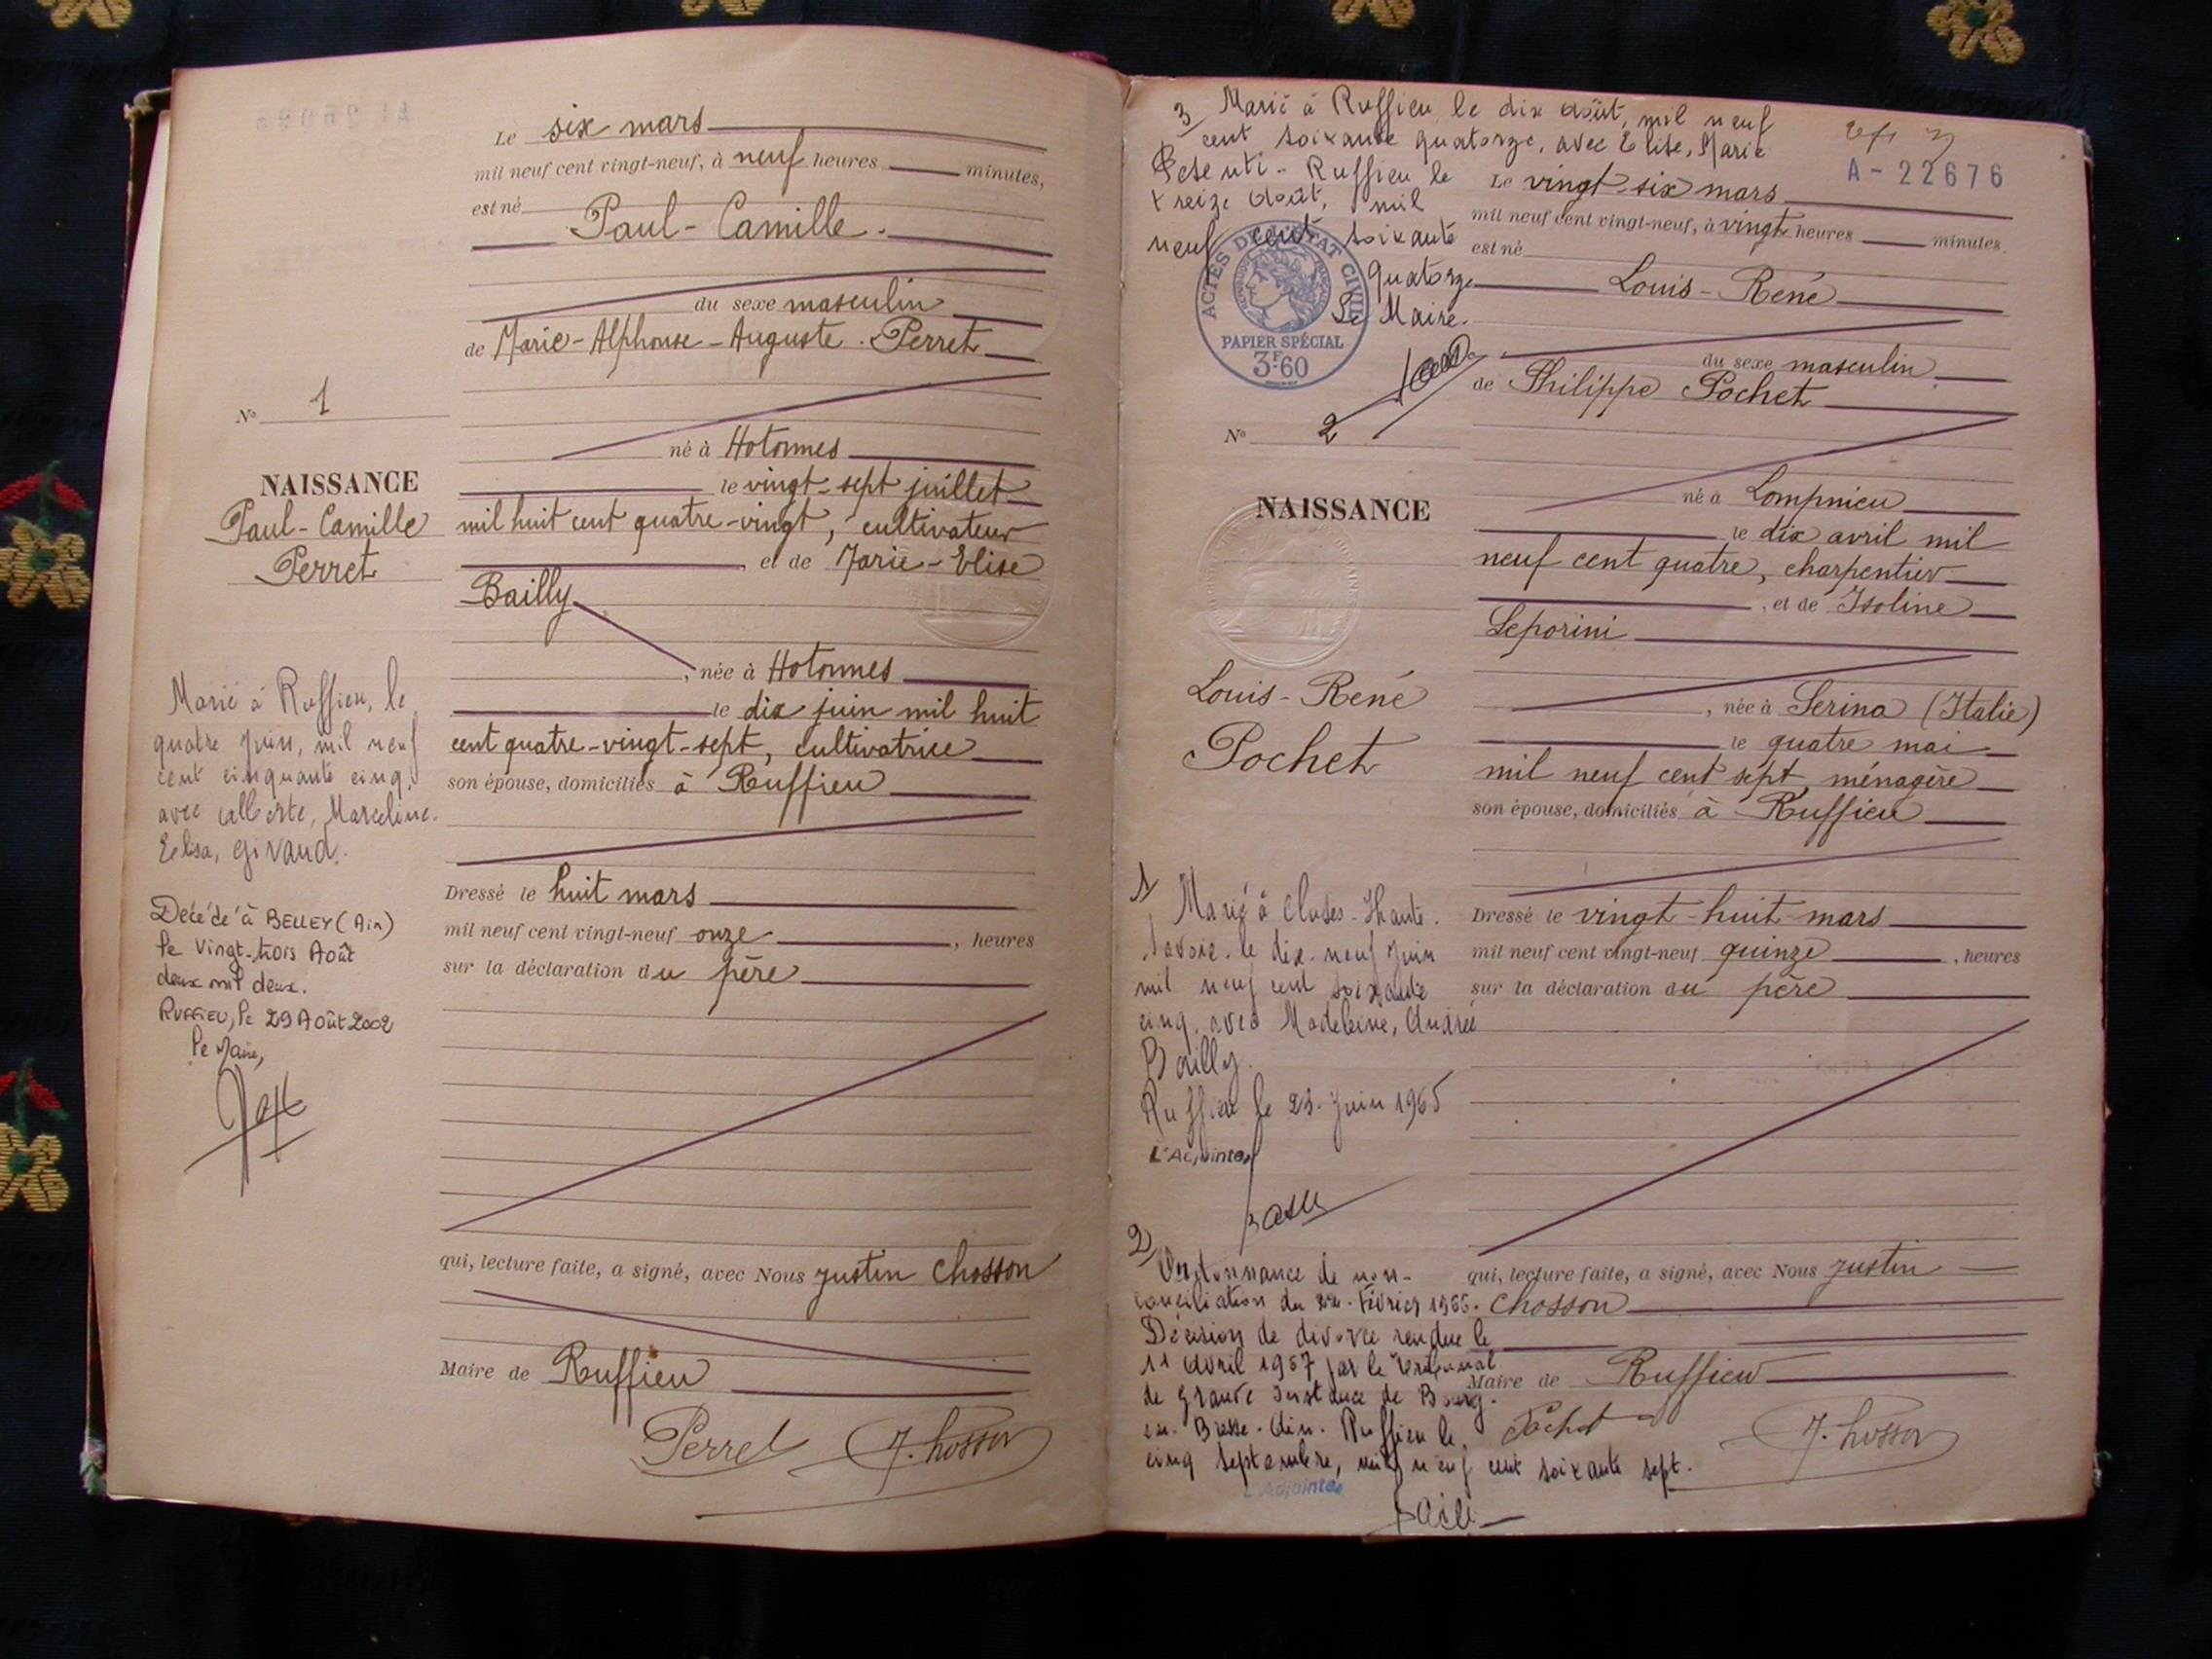 Le six mars
mil neuf cent vingt-neuf, à neuf heures minutes,
est né
Paul-Camille.
du sexe masculin
de Marie-Alphonse-Auguste Perret
né à Hotonnes
le vingt-sept juillet
mil huit cent quatre-vingt, cultivateur
, et de Marie-Elise
Bailly
, née à Hotonnes
le dix juin mil huit
cent quatre-vingt-sept, cultivatrice
son épouse, domiciliés à Ruffieu
Dressé le huit mars
mil neuf cent vingt-neuf onze , heures
sur la déclaration du père
qui, lecture faite, a signé, avec Nous Justin Chosson
Maire de Ruffieu
Perret J. Chosson
No 1
NAISSANCE
Paul-Camille
Perret
Marié à Ruffieu, le
quatre Juin, mil neuf
cent cinquante cinq,
avec Alberte, Marceline.
Elisa, Givaud.
Décédé à BELLEY (Ain)
le Vingt-trois Août
deux mil deux.
RUFFIEU, le 29 Août 2002
le Maire,
3 Marié à Ruffieu, le dix août, mil neuf
cent soixante quatorze, avec Elise, Marie
Pesenti - Ruffieu le
treize août, mil
neuf cent soixante
quatorze
Le Maire.
ACTES DE L'ETAT CIVIL
PAPIER SPÉCIAL
3F60
A-22676
Le vingt-six mars
mil neuf cent vingt-neuf, à vingt heures minutes.
est né
Louis-René
du sexe masculin
de Philippe Pochet
né à Lompnieu
le dix avril mil
neuf cent quatre, charpentier
, et de Isoline
Leporini
, née à Serina (Italie)
le quatre mai
mil neuf cent sept, ménagère
son épouse, domiciliés à Ruffieu
Dressé le vingt-huit mars
mil neuf cent vingt-neuf quinze , heures
sur la déclaration du père
qui, lecture faite, a signé, avec Nous Justin
Chosson
Maire de Ruffieu
Pochet J. Chosson
No 2
NAISSANCE
Louis-René
Pochet
1 Marié à Cluses-Haute.
Savoie. le dix-neuf Juin
mil neuf cent soixante
cinq. avec Madeleine, Andrée
Bailly.
Ruffieu le 23. Juin 1965
L'Adjointe,
2) Ordonnance de non-
conciliation du Février 1966.
Décision de divorce rendue le
11 avril 1967 par le Tribunal
de Grande Instance de Bourg-
en-Bresse. Ain. Ruffieu le
cinq Septembre, mil neuf cent soixante sept.
L'Adjointe